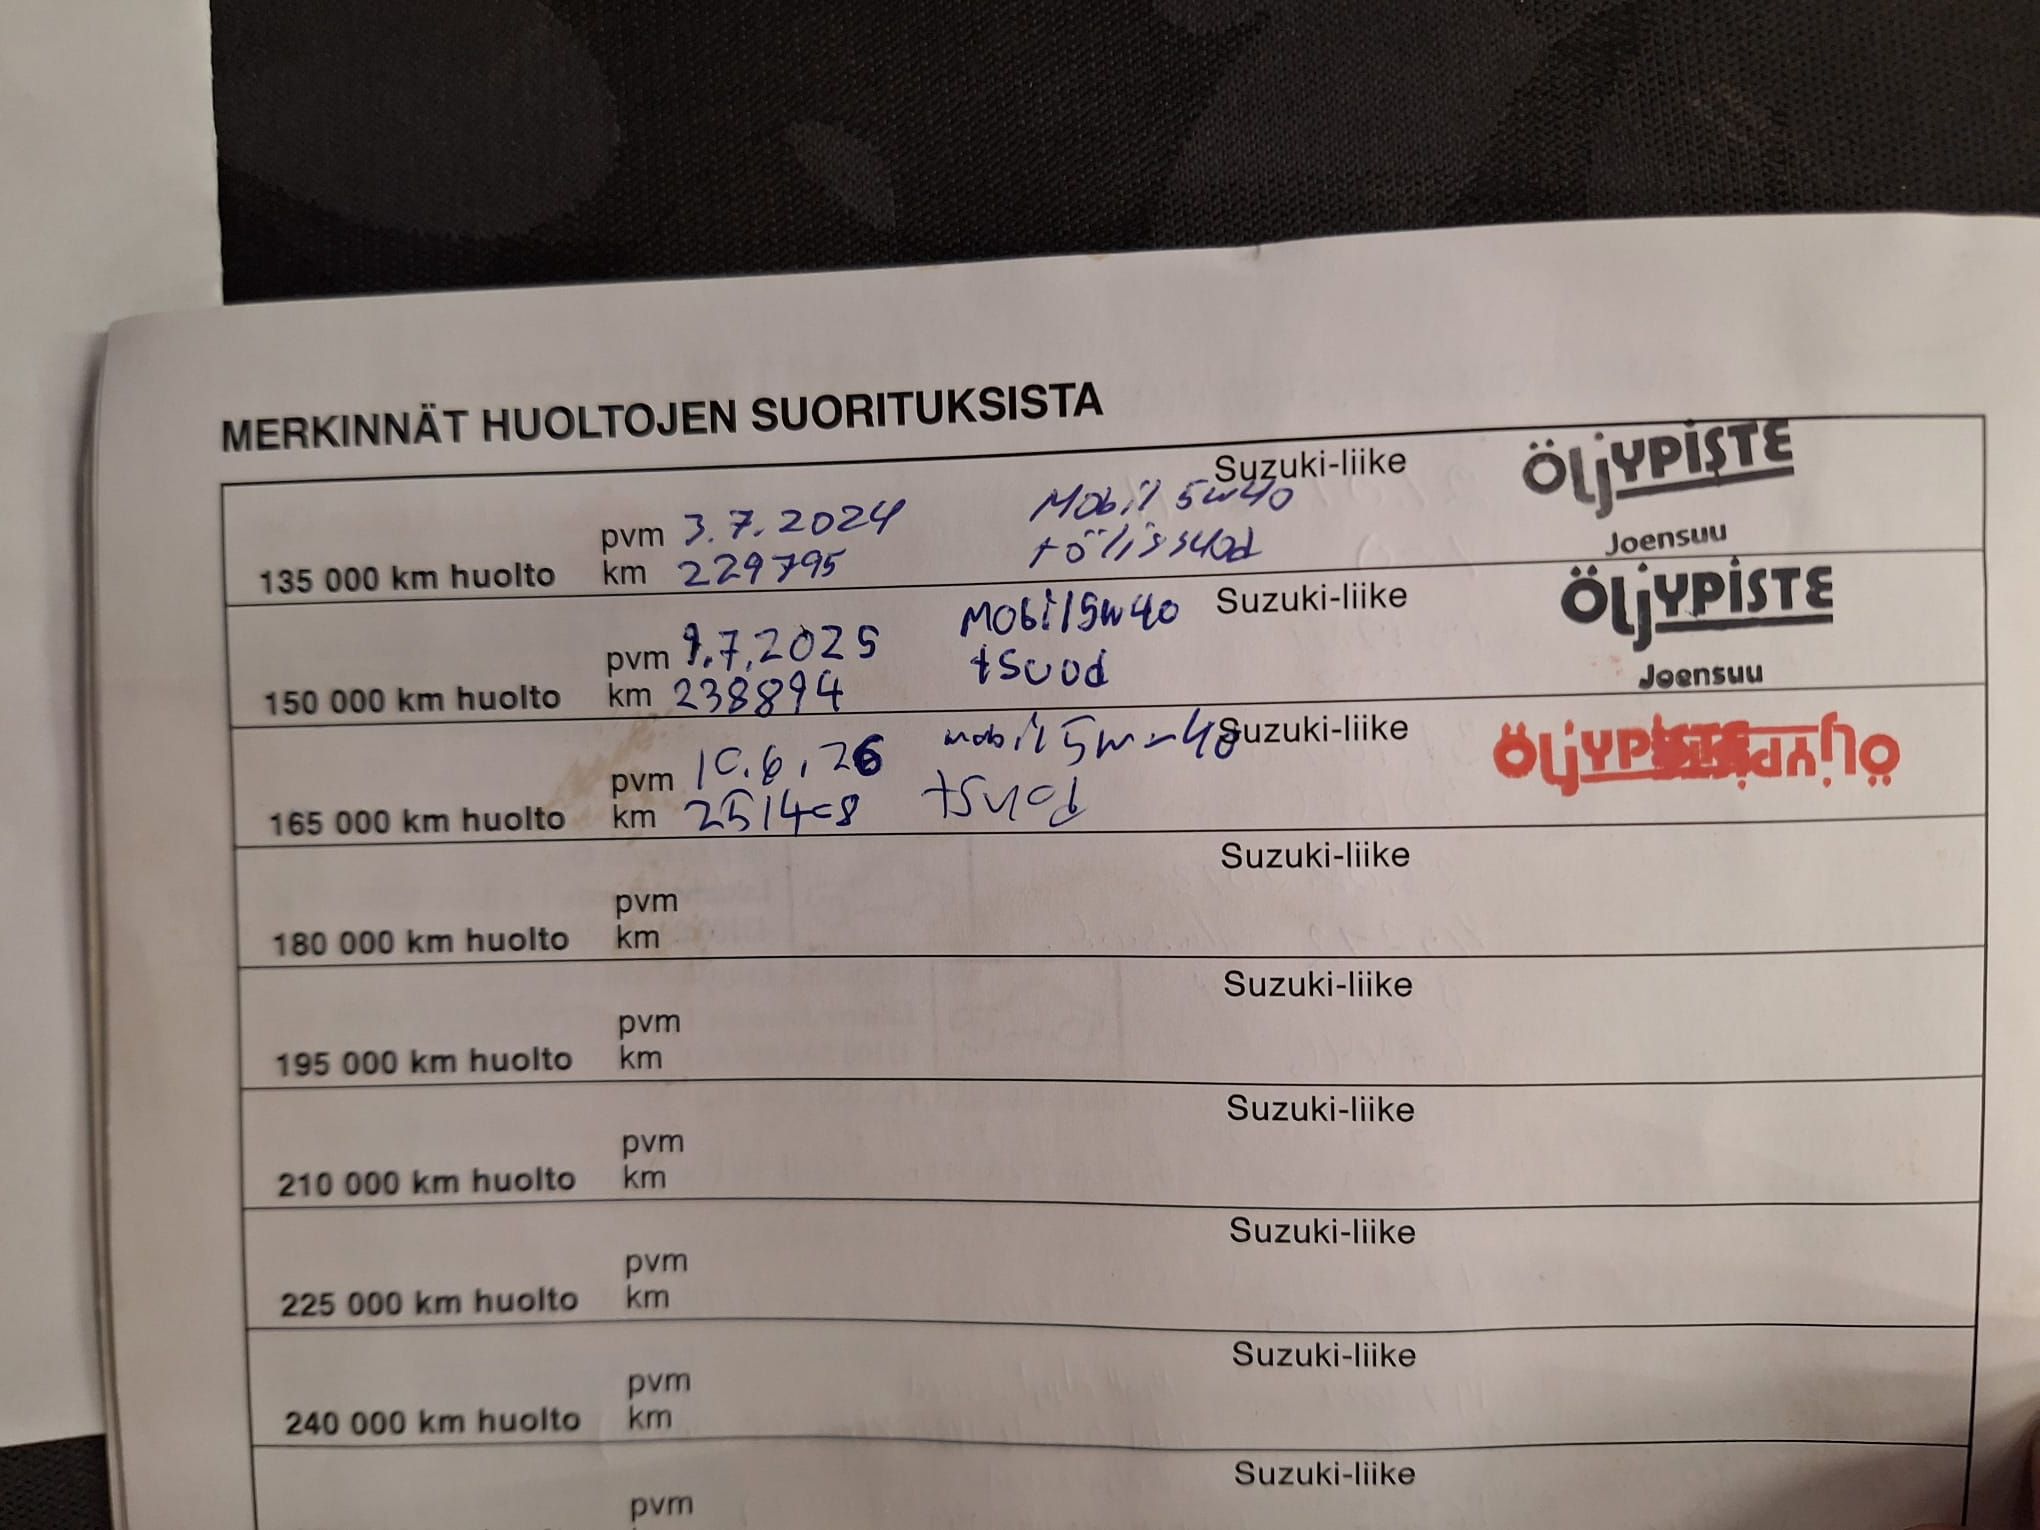 MERKINNÄT HUOLTOJEN SUORITUKSISTA
Suzuki-liike
ÖLjYPiSTE
Joensuu
135 000 km huolto
pvm 3.7.2024
km 229795
Mobil 5w40
t öljissuod
Suzuki-liike
ÖLjYPiSTE
Joensuu
150 000 km huolto
pvm 9.7.2025
km 238894
Mobil 5w40
tsuod
Suzuki-liike
ÖLjYP
165 000 km huolto
pvm 10.6.26
km 251408
mobil 5w-40
tsuod
Suzuki-liike
180 000 km huolto
pvm
km
Suzuki-liike
195 000 km huolto
pvm
km
Suzuki-liike
210 000 km huolto
pvm
km
Suzuki-liike
225 000 km huolto
pvm
km
Suzuki-liike
240 000 km huolto
pvm
km
Suzuki-liike
pvm